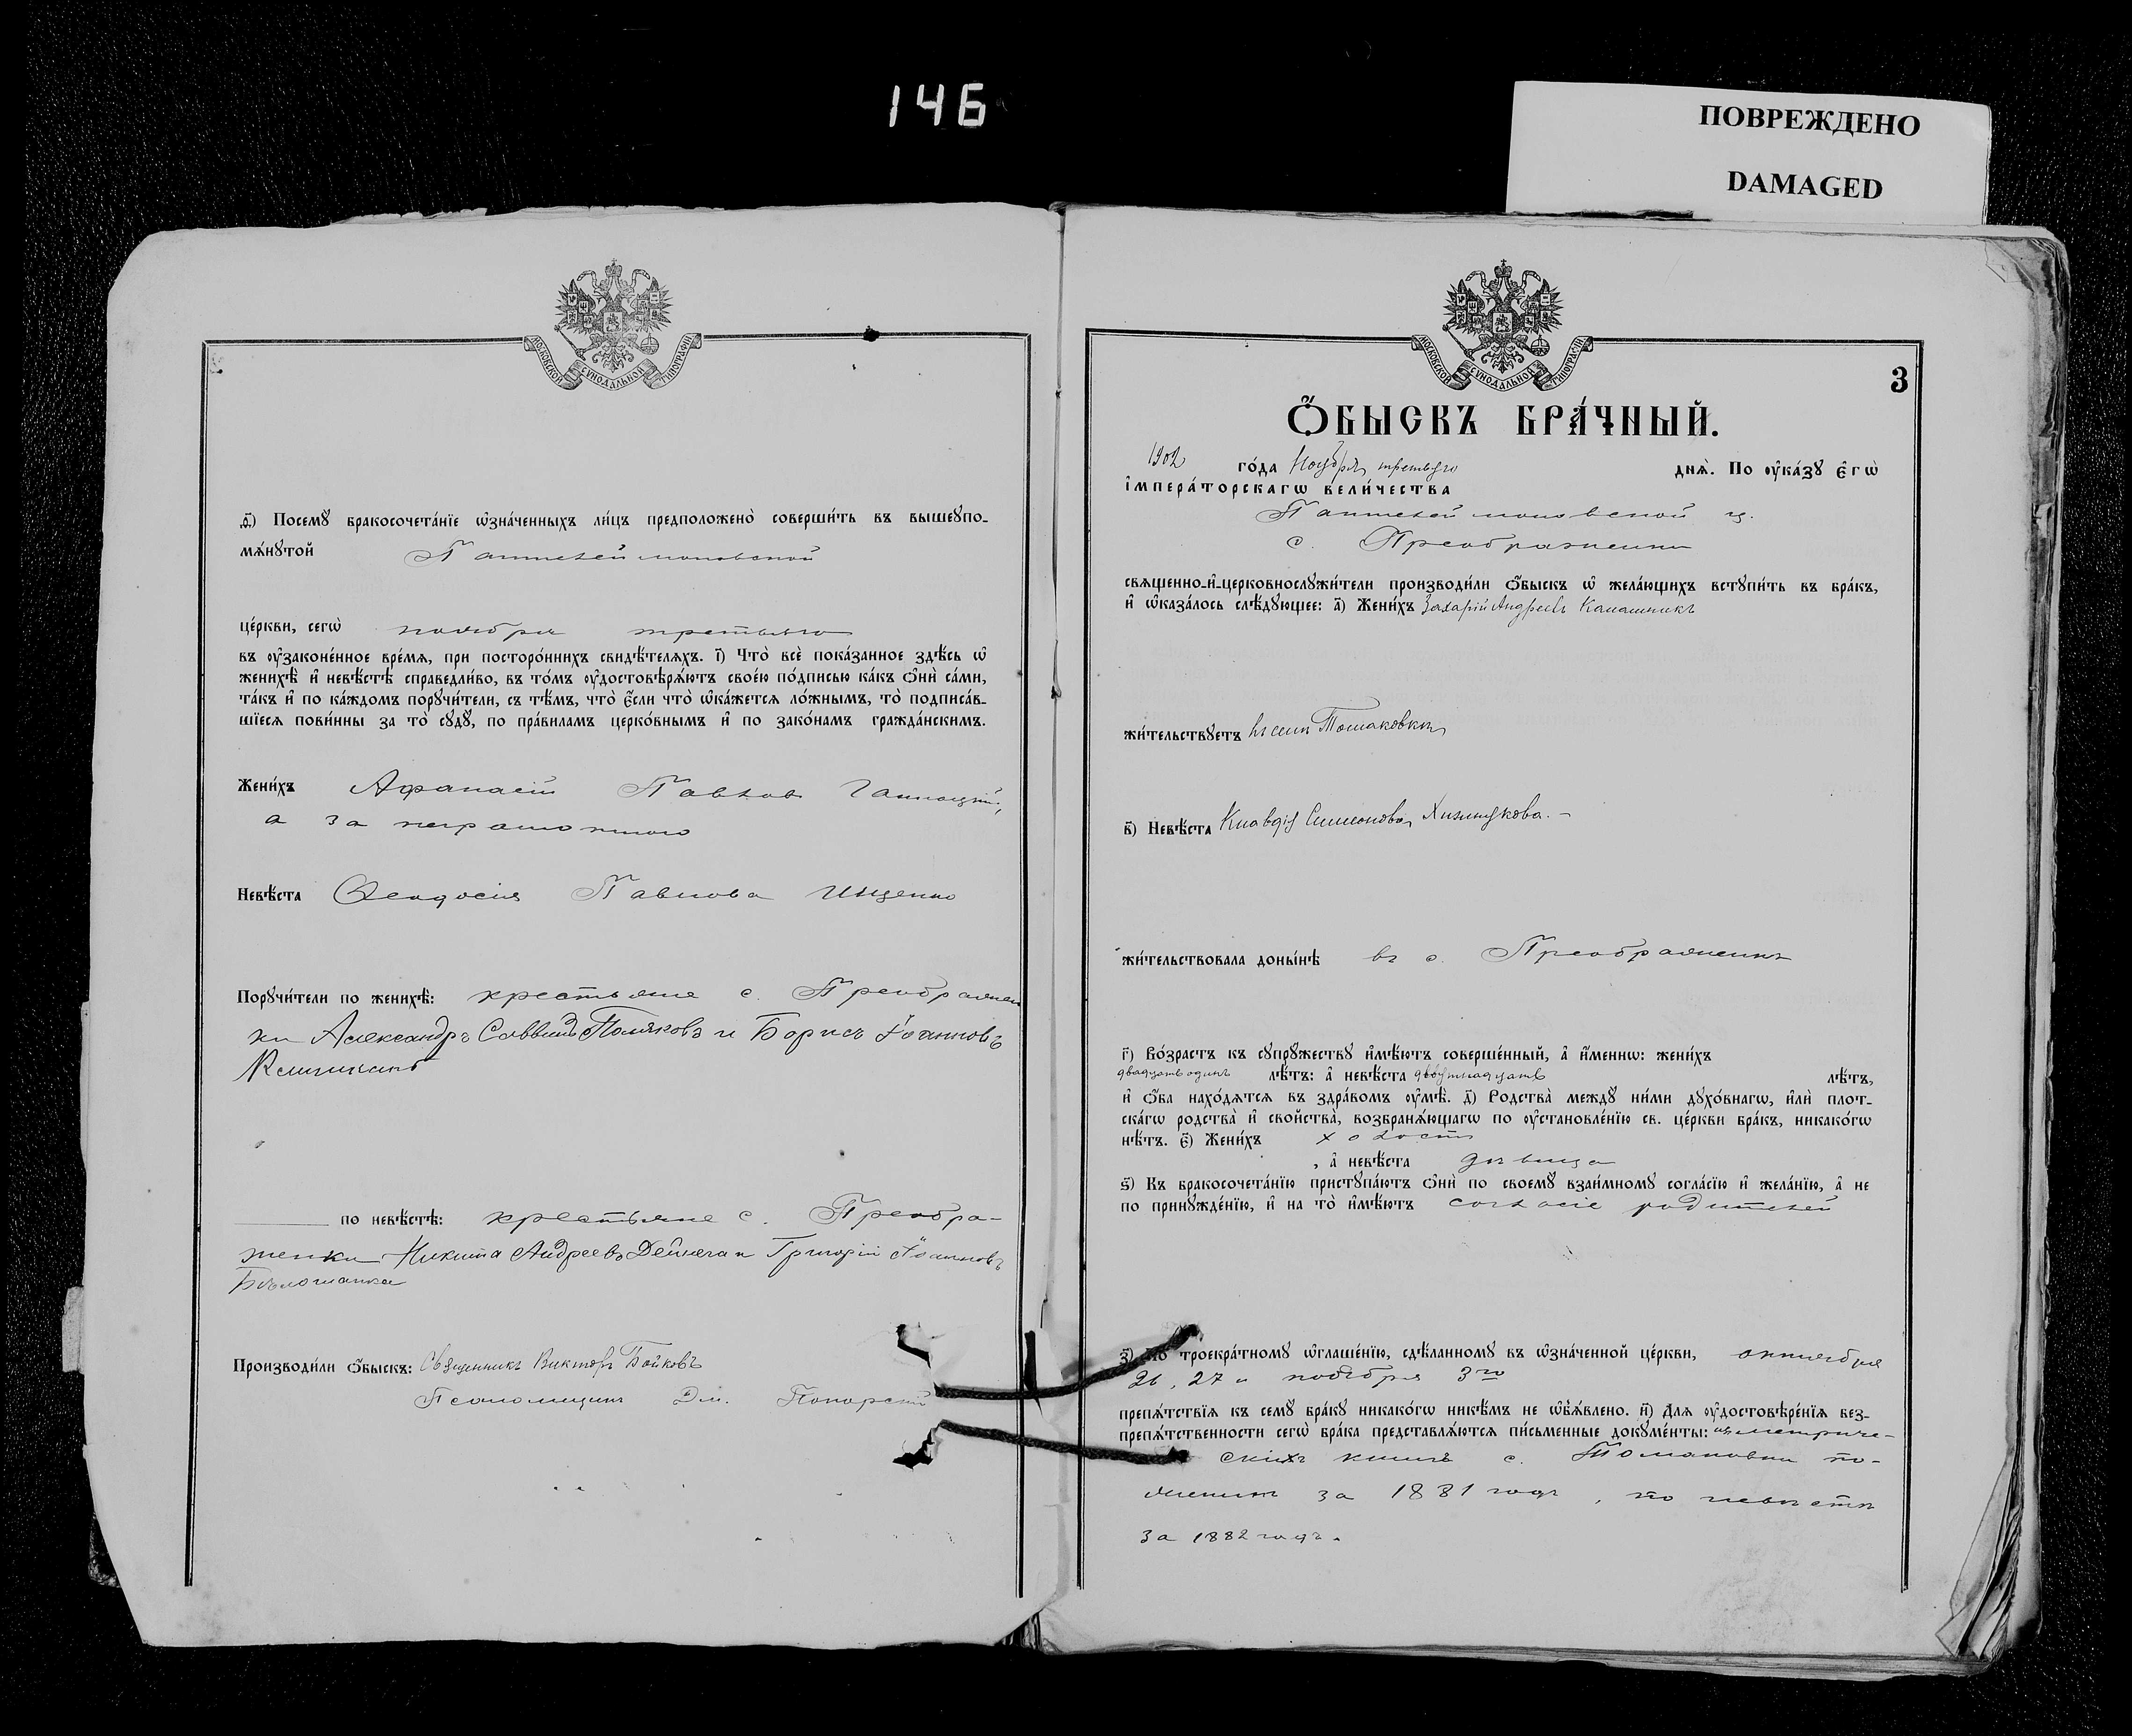 146
ПОВРЕЖДЕНО
DAMAGED
МОСКОВСКОЙ СѴНОДАЛЬНОЙ ТИПОГРАФІИ
ѳ҃) Посемꙋ бракосочета́нїе ѡ҆зна́ченныхъ ли́цъ предположено̀ соверши́ть въ вышеупо-
мѧ́нꙋтой Пантелеймоновской
це́ркви, сегѡ̀ ноября третьяго
въ ᲂу҆законе́нное вре́мѧ, при посторо́ннихъ свидѣ́телѧхъ. і҃) Что̀ всѐ пока́занное здѣ́сь ѡ҆
женихѣ̀ и҆ невѣ́стѣ справедли́во, въ то́мъ ᲂу҆достовѣрѧ́ютъ свое́ю по́дписью ка́къ ѻ҆нѝ са́ми,
та́къ и҆ по ка́ждомъ порꙋчи́тели, съ тѣ́мъ, что̀ є҆́сли что̀ ѡ҆ка́жетсѧ ло́жнымъ, то̀ подписа́в-
шїесѧ пови́нны за то̀ сꙋдꙋ̀, по пра́виламъ церко́внымъ и҆ по зако́намъ гражда́нскимъ.
Жени́хъ Афанасій Павлов
а за неграмотного
Невѣ́ста Ѳеодосія Павлова Ищенко
Порꙋчи́тели по женихѣ̀: крестьяне с. Преображен
ки Александръ Саввинъ Поляковъ и Борисъ Іоанновъ
по невѣ́стѣ: крестьяне с. Преобра-
женки Никита Андреевъ Дейнега и Григорій Іоанновъ
Производи́ли ѻ҆́быскъ: Священникъ Викторъ Бойковъ
Псаломщикъ Дм.
МОСКОВСКОЙ СѴНОДАЛЬНОЙ ТИПОГРАФІИ
3
Ѻ҆́БЫСКЪ БРА́ЧНЫЙ.
1902 го́да Ноября третьяго днѧ̀. По ᲂу҆ка́зꙋ є҆гѡ̀
і҆мпера́торскагѡ вели́чества
Пантелеймоновской ц.
с. Преображенки
свѧщенно-и҆-церковнослꙋжи́тели производи́ли ѻ҆́быскъ ѡ҆ жела́ющихъ встꙋпи́ть въ бра́къ,
и҆ ѡ҆каза́лось слѣ́дꙋющее: а҃) Жени́хъ Захарій Андреевъ
жи́тельствꙋетъ въ селѣ Томаковкѣ
в҃) Невѣ́ста Клавдія Симеонова
жи́тельствовала доны́нѣ въ с. Преображенкѣ
г҃) Во́зрастъ къ сꙋпрꙋ́жествꙋ и҆мѣ́ютъ соверше́нный, а҆ и҆́меннѡ: жени́хъ
двадцать одинъ лѣ́тъ: а҆ невѣ́ста двадцать лѣ́тъ,
и҆ ѻ҆́ба нахо́дѧтсѧ въ здра́вомъ ᲂу҆мѣ̀. д҃) Родства̀ междꙋ̀ ни́ми дꙋхо́внагѡ, и҆лѝ плот-
ска́гѡ родства̀ и҆ сво́йства̀, возбранѧ́ющагѡ по ᲂу҆становле́нїю св. це́ркви бра́къ, никако́гѡ
нѣ́тъ. є҃) Жени́хъ холостъ
, а҆ невѣ́ста дѣвица
ѕ҃) Къ бракосочета́нїю пристꙋпа́ютъ ѻ҆нѝ по своемꙋ̀ взаи́мномꙋ согла́сїю и҆ жела́нїю, а҆ не
по принꙋжде́нїю, и҆ на то̀ и҆мѣ́ютъ согласіе родителей
з҃) По троекра́тномꙋ ѡ҆глаше́нїю, сдѣ́ланномꙋ въ ѡ҆зна́ченной це́ркви, октября
26, 27 и ноября 3го
препѧ́тствїѧ къ семꙋ̀ бра́кꙋ никако́гѡ никѣ́мъ не ѡ҆б̾ѧ́влено. и҃) Длѧ ᲂу҆достовѣре́нїѧ без-
препѧ́тственности сегѡ̀ бра́ка представлѧ́ютсѧ пи́сьменные докꙋме́нты: изъ метриче-
скихъ книгъ с. Томаковки по
женихѣ за 1881 годъ, по невѣстѣ
за 1882 годъ.